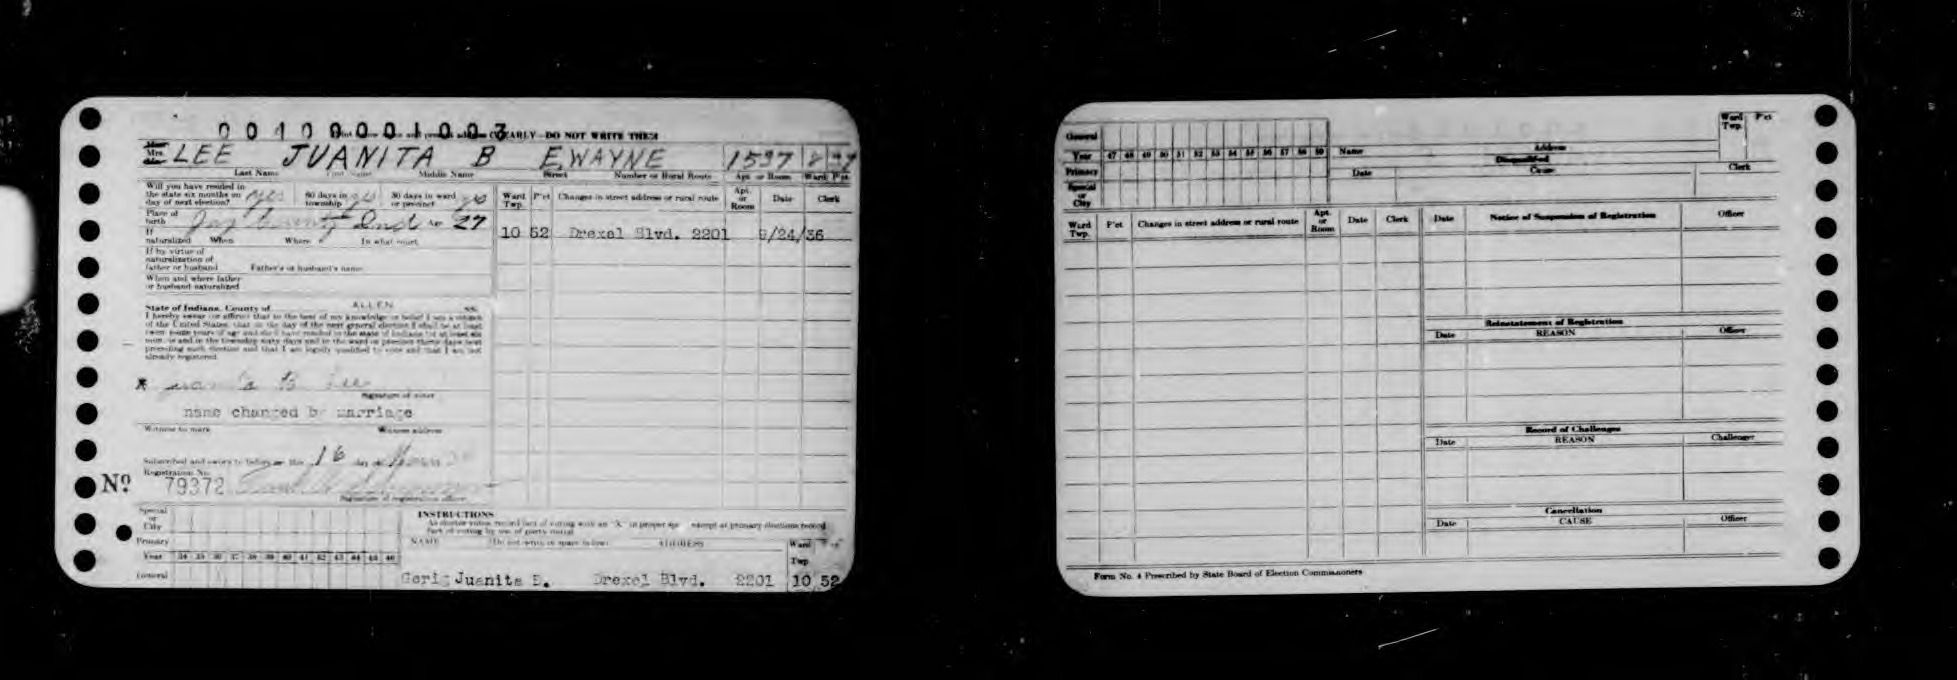 0 0 1 0 0 0 0 1 0 0 3
CLEARLY—DO NOT WRITE THESE
Mrs. LEE JUANITA B E. WAYNE 1537
Last Name First Name Middle Name Street Number or Rural Route Apt. or Room Ward P'ct
Will you have resided in the state six months on day of next election? yes 60 days in township yes 30 days in ward or precinct yes
Place of birth Jay County Ind Age 27
If naturalized When Where In what court
If by virtue of naturalization of father or husband Father's or husband's name
When and where father or husband naturalized
Ward Twp. P'ct Changes in street address or rural route Apt. or Room Date Clerk
10 52 Drexel Blvd. 2201 9/24/36
State of Indiana, County of ALLEN SS:
I hereby swear (or affirm) that to the best of my knowledge or belief I am a citizen
of the United States, that on the day of the next general election I shall be at least
twenty-one years of age and shall have resided in the state of Indiana for at least six
months and in the township sixty days and in the ward or precinct thirty days next
preceding such election and that I am legally qualified to vote and that I am not
already registered.
x Juanita B Lee
Signature of voter
name changed by marriage
Witness to mark Witness address
Subscribed and sworn to before me this 16 day of
Registration No.
No 79372
Signature of registration officer
Special or City
Primary
Year 34 35 36 37 38 39 40 41 42 43 44 45 46
General
INSTRUCTIONS
As elector votes record fact of voting with an "X" in proper space except at primary elections record
fact of voting by use of party initial
NAME (Do not write in space below) ADDRESS Ward Twp.
Juanita B. Drexel Blvd. 2201 10 52
General
Year 47 48 49 50 51 52 53 54 55 56 57 58 59
Primary
Special or City
Name Address Ward Twp. P'ct
Disqualified
Date Cause Clerk
Ward Twp. P'ct Changes in street address or rural route Apt. or Room Date Clerk
Date Notice of Suspension of Registration Officer
Reinstatement of Registration
Date REASON Officer
Record of Challenges
Date REASON Challenger
Cancellation
Date CAUSE Officer
Form No. 4 Prescribed by State Board of Election Commissioners